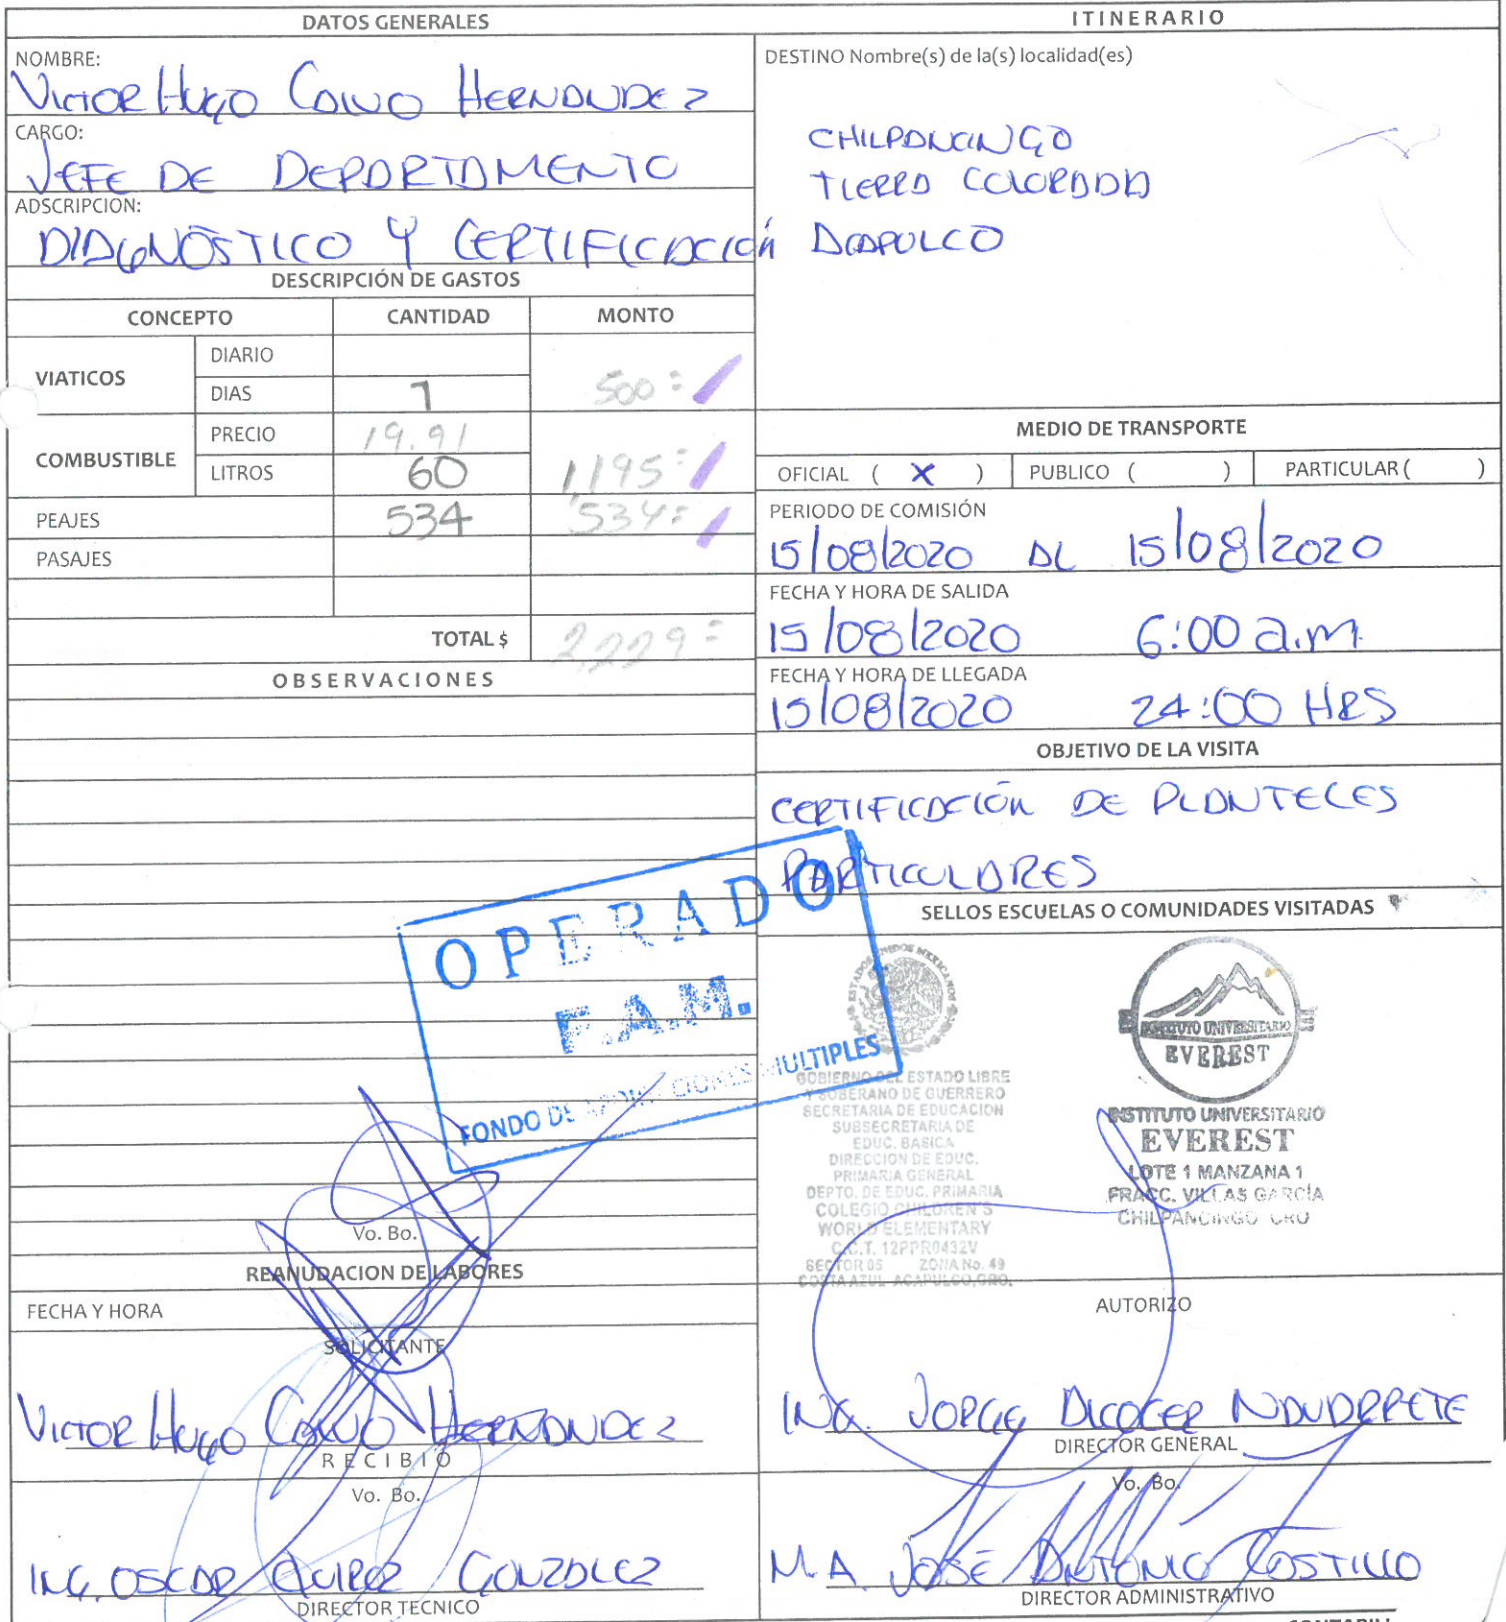 DATOS GENERALES
NOMBRE:
VICTOR HUGO CALVO HERNANDEZ
CARGO:
JEFE DE DEPARTAMENTO
ADSCRIPCION:
DIAGNÓSTICO Y CERTIFICACIÓN
DESCRIPCIÓN DE GASTOS
CONCEPTO CANTIDAD MONTO
VIATICOS
DIARIO
DIAS 1 500=
COMBUSTIBLE
PRECIO 19.91
LITROS 60 1,195=
PEAJES 534 534=
PASAJES
TOTAL $ 2,229=
OBSERVACIONES
OPERADO
F.A.M.
FONDO DE APORTACIONES MULTIPLES
Vo. Bo.
REANUDACION DE LABORES
FECHA Y HORA
SOLICITANTE
VICTOR HUGO CALVO HERNANDEZ
RECIBIÓ
Vo. Bo.
ING. OSCAR QUIROZ GONZALEZ
DIRECTOR TECNICO
ITINERARIO
DESTINO Nombre(s) de la(s) localidad(es)
CHILPANCINGO
TIERRA COLORADA
ACAPULCO
MEDIO DE TRANSPORTE
OFICIAL ( X ) PUBLICO ( ) PARTICULAR ( )
PERIODO DE COMISIÓN
15/08/2020 AL 15/08/2020
FECHA Y HORA DE SALIDA
15/08/2020 6:00 a.m.
FECHA Y HORA DE LLEGADA
15/08/2020 24:00 HRS
OBJETIVO DE LA VISITA
CERTIFICACIÓN DE PLANTELES
PARTICULARES
SELLOS ESCUELAS O COMUNIDADES VISITADAS
ESTADOS UNIDOS MEXICANOS
GOBIERNO DEL ESTADO LIBRE
Y SOBERANO DE GUERRERO
SECRETARIA DE EDUCACION
SUBSECRETARIA DE
EDUC. BASICA
DIRECCION DE EDUC.
PRIMARIA GENERAL
DEPTO. DE EDUC. PRIMARIA
COLEGIO CHILDREN'S
WORLD ELEMENTARY
C.C.T. 12PPR0432V
SECTOR 05 ZONA No. 49
COSTA AZUL ACAPULCO, GRO.
INSTITUTO UNIVERSITARIO
EVEREST
INSTITUTO UNIVERSITARIO
EVEREST
LOTE 1 MANZANA 1
FRACC. VILLAS GARCÍA
CHILPANCINGO GRO
AUTORIZO
ING. JORGE ALCOCER NAVARRETE
DIRECTOR GENERAL
Vo. Bo.
M.A. JOSÉ ANTONIO CASTILLO
DIRECTOR ADMINISTRATIVO